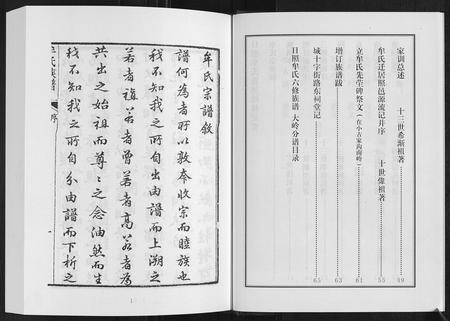 家训总述 十三世希渐祖著 49
牟氏迁居照邑源流记并序 十世偉祖著 55
立牟氏先茔碑祭文(在小古家沟南岭) 61
增订族谱跋 63
城十字街路东祠堂记 65
日照牟氏六修族谱 大岭分谱目录
牟氏宗譜敘
譜何為者所以敦本收宗而睦族也
我不知我之所自出由譜而上溯之
若者禰若者曾若者高若者為
共出之始祖而尊尊之念油然而生
我不知我之所自分由譜而下析之
牟氏族譜 序
1